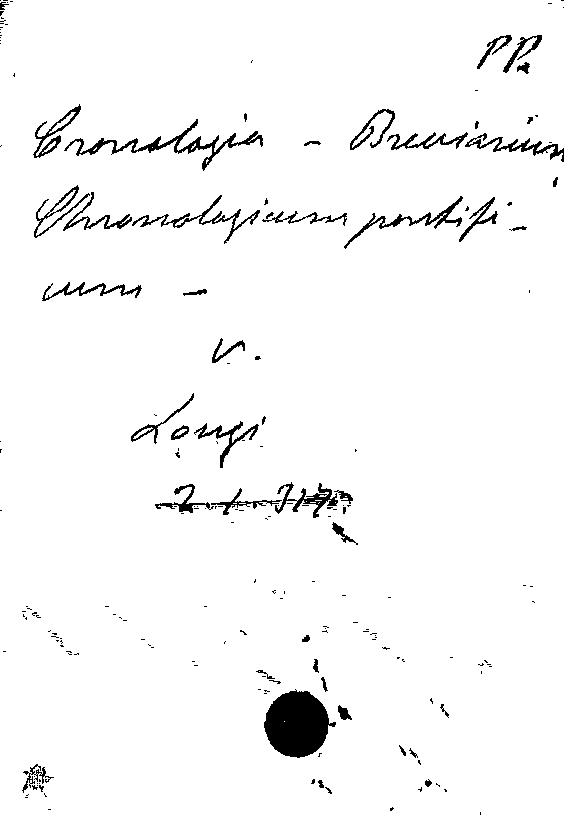 PP.
Cronologia - Breviarium
Chronologicum pontifi-
cum -
v.
Longi